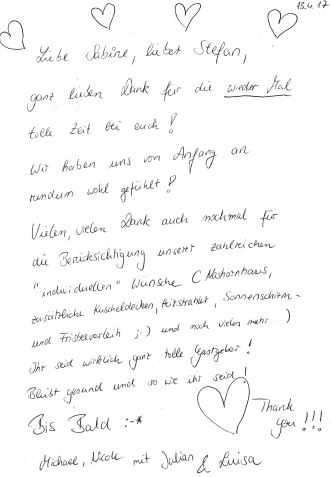 13.4.17
Liebe Sabine, lieber Stefan,
ganz lieben Dank für die wieder Mal
tolle Zeit bei euch!
Wir haben uns von Anfang an
rundum wohl gefühlt!
Vielen, vielen Dank auch nochmal für
die Berücksichtigung unserer zahlreichen
"individuellen" Wünsche (
zusätzliche Kuscheldecken, Heizstrahler, Sonnenschirm-
und ;-) und noch vieles mehr...)
Ihr seid wirklich ganz tolle Gastgeber!
Bleibt gesund und so wie ihr seid!
Bis Bald :-*
Thank
you!!!
Michael, Nicole mit Julian & Luisa